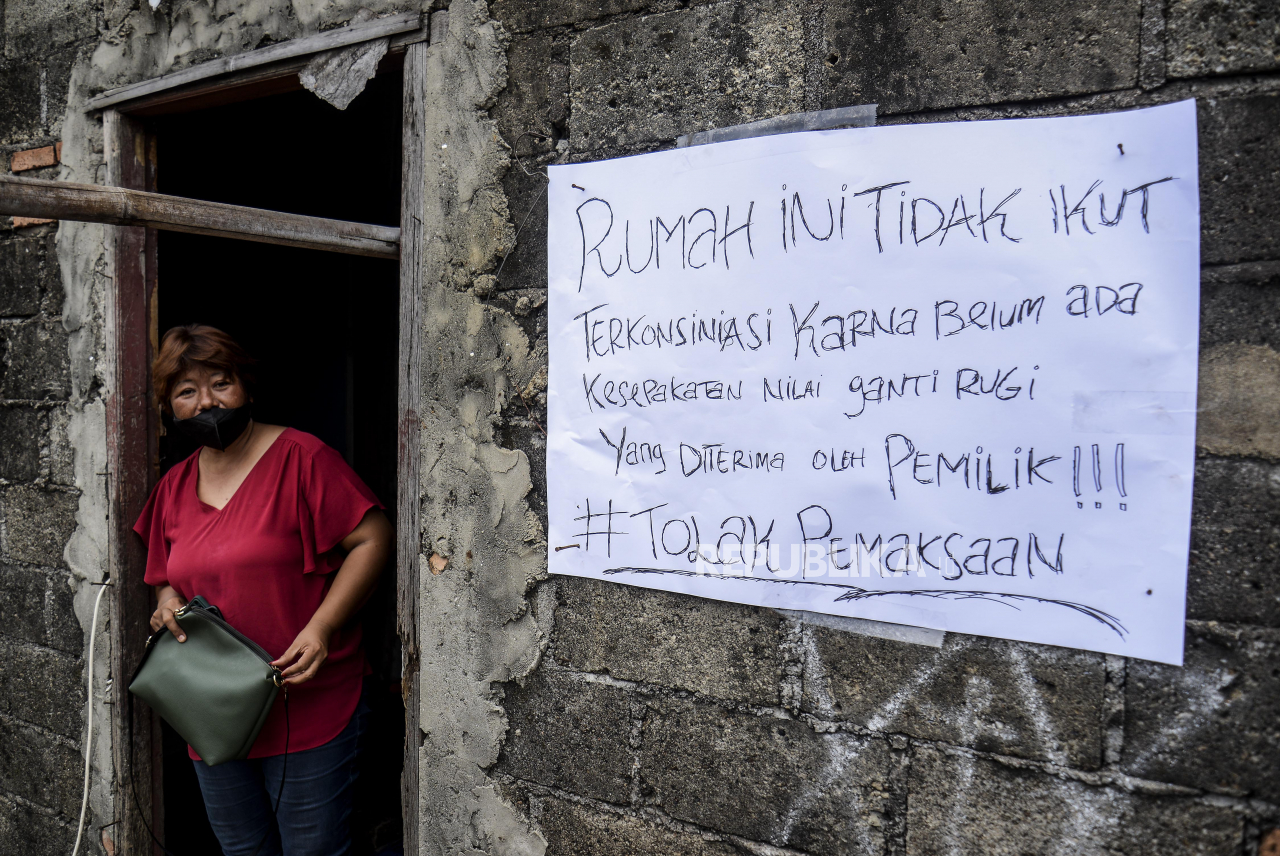 RUMAH INI TIDAK IKUT
TERKONSINIASI KARNA BELUM ADA
KESEPAKATAN NILAI GANTI RUGI
YANG DITERIMA OLEH PEMILIK !!!
#TOLAK PEMAKSAAN
REPUBLIKA